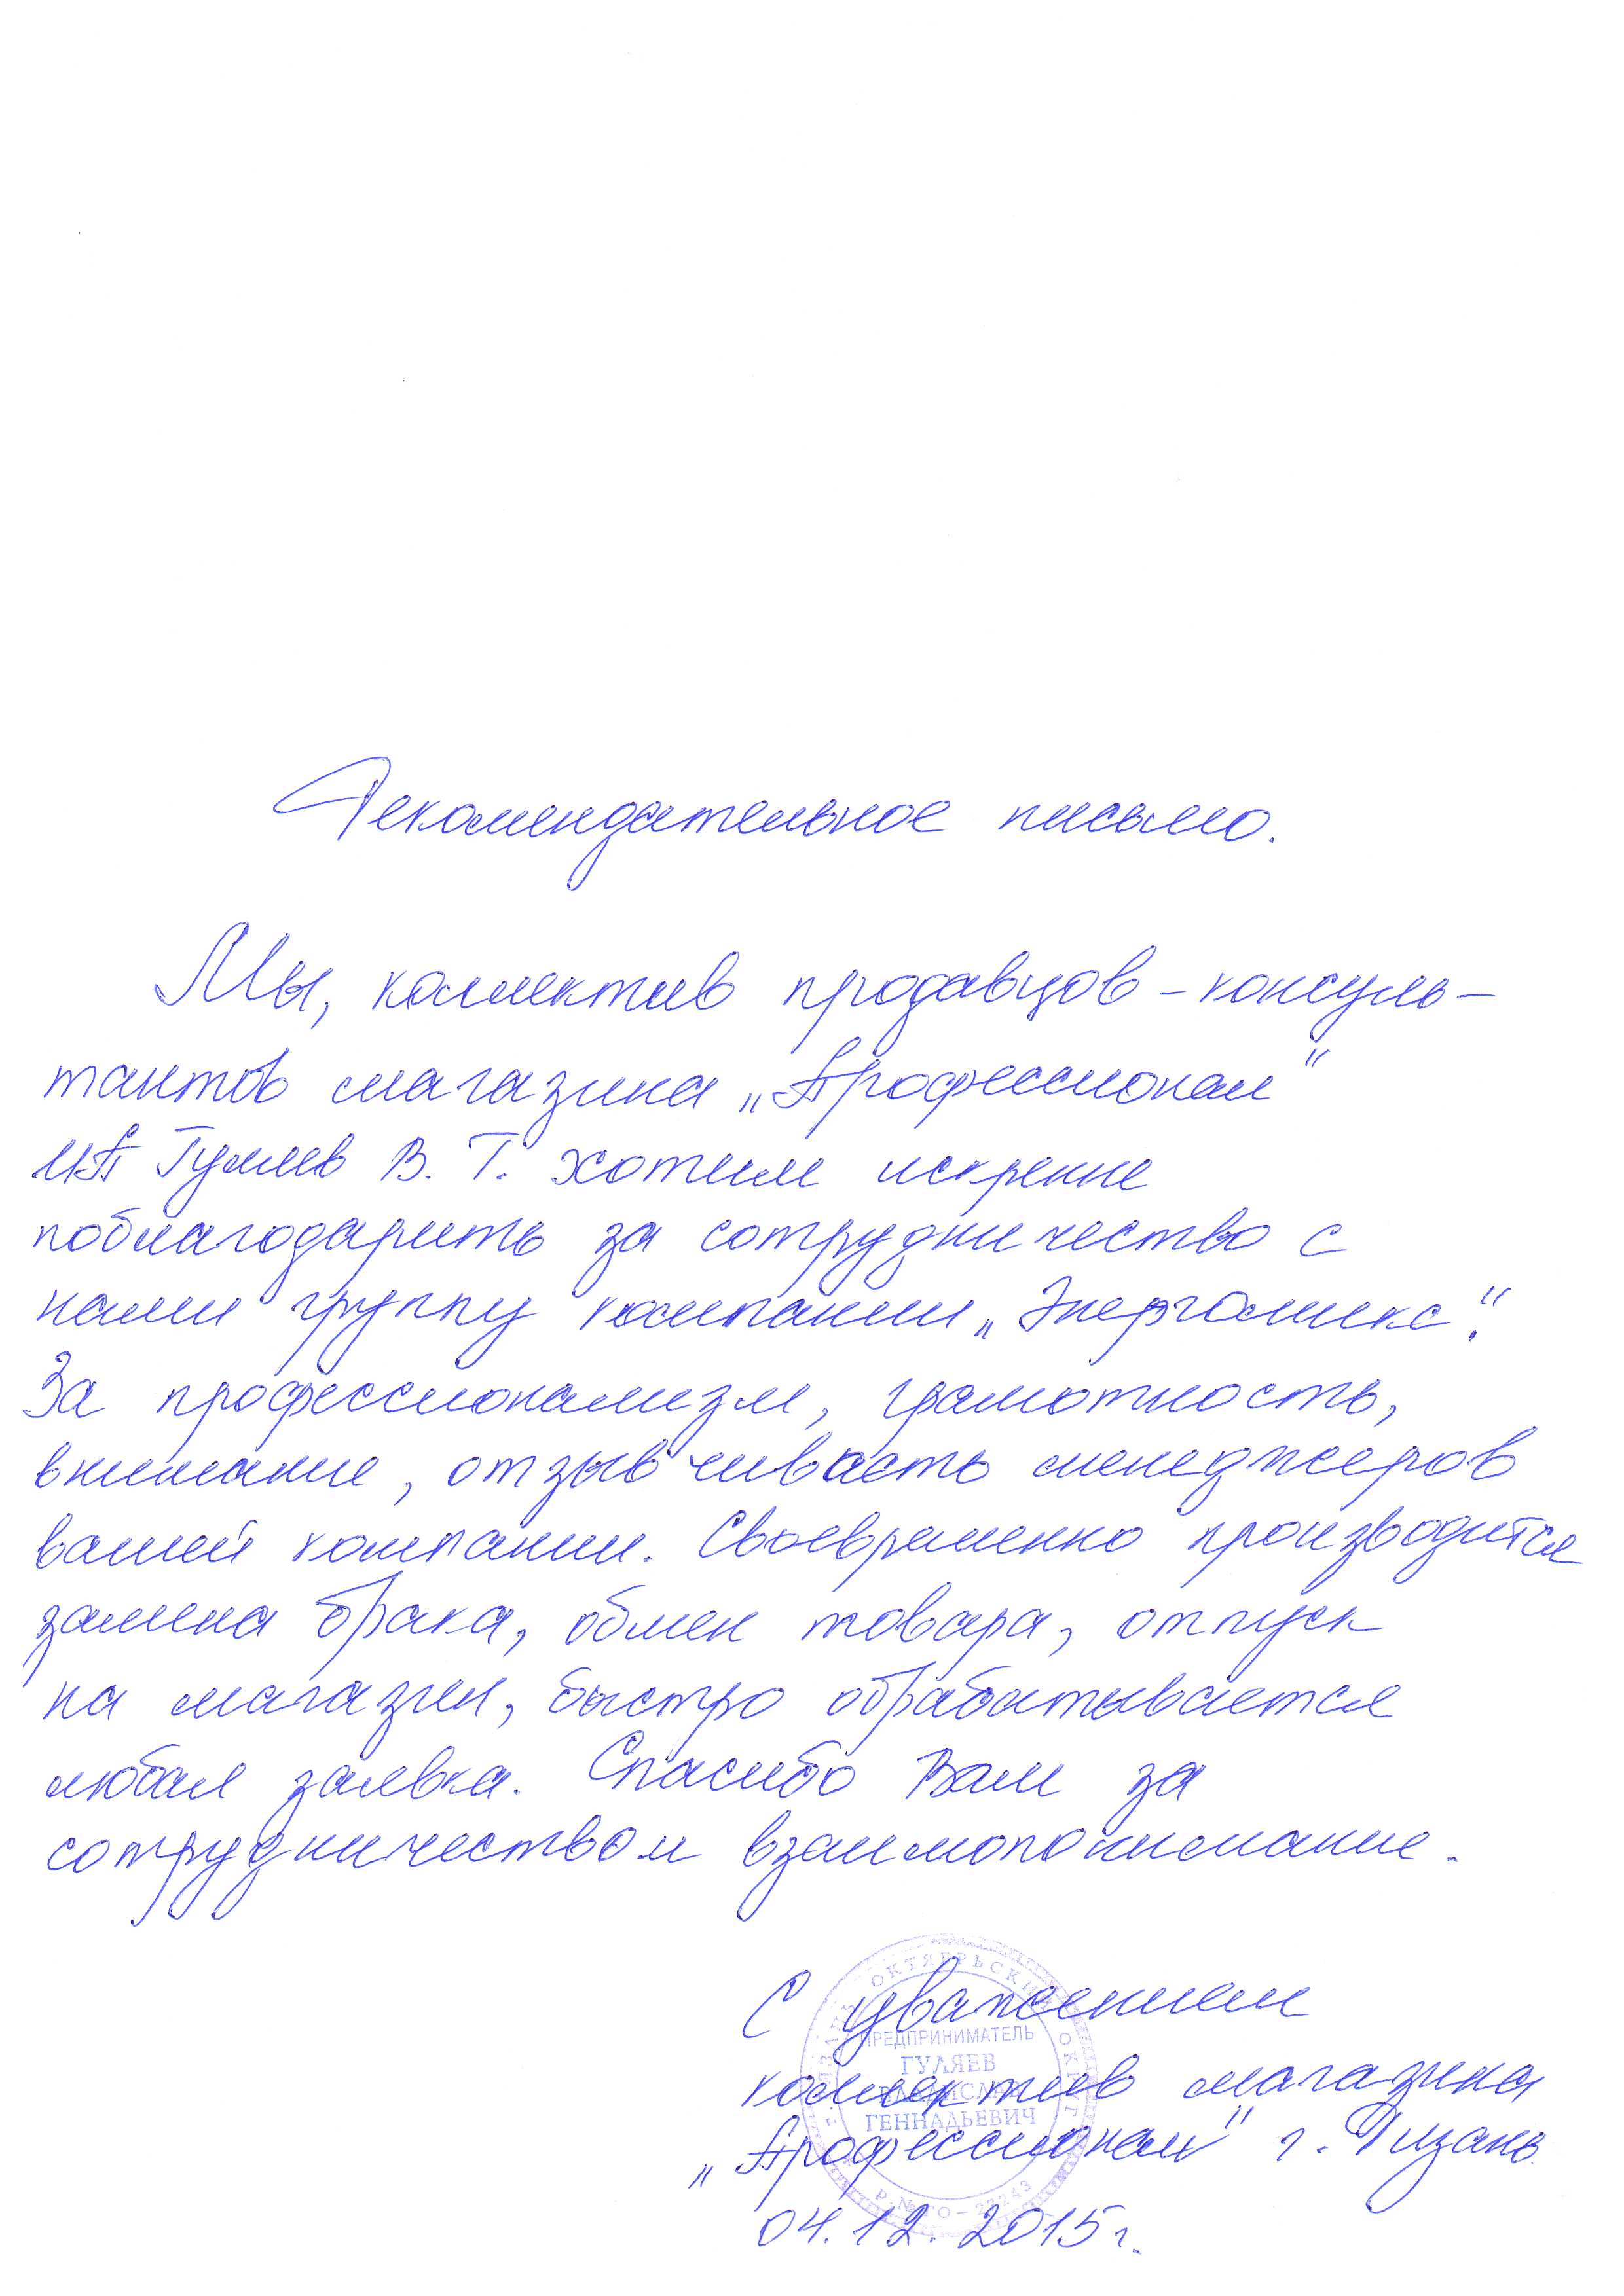 Рекомендательное письмо.
Мы, коллектив продавцов-консуль-
тантов магазина „Профессионал"
ИП Гуляев В. Г. хотим искренне
поблагодарить за сотрудничество с
нами группу компании „Энергомикс".
За профессионализм, грамотность,
внимание, отзывчивость менеджеров
вашей компании. Своевременно производится
замена брака, обмен товара, отпуск
на магазин, быстро обрабатывается
любая заявка. Спасибо Вам за
сотрудничество и взаимопонимание.
С уважением
коллектив магазина
„Профессионал" г. Рязань
04.12.2015г.
ОКТЯБРЬСКИЙ ОКРУГ
ПРЕДПРИНИМАТЕЛЬ
ГУЛЯЕВ
ВЛАДИСЛАВ
ГЕННАДЬЕВИЧ